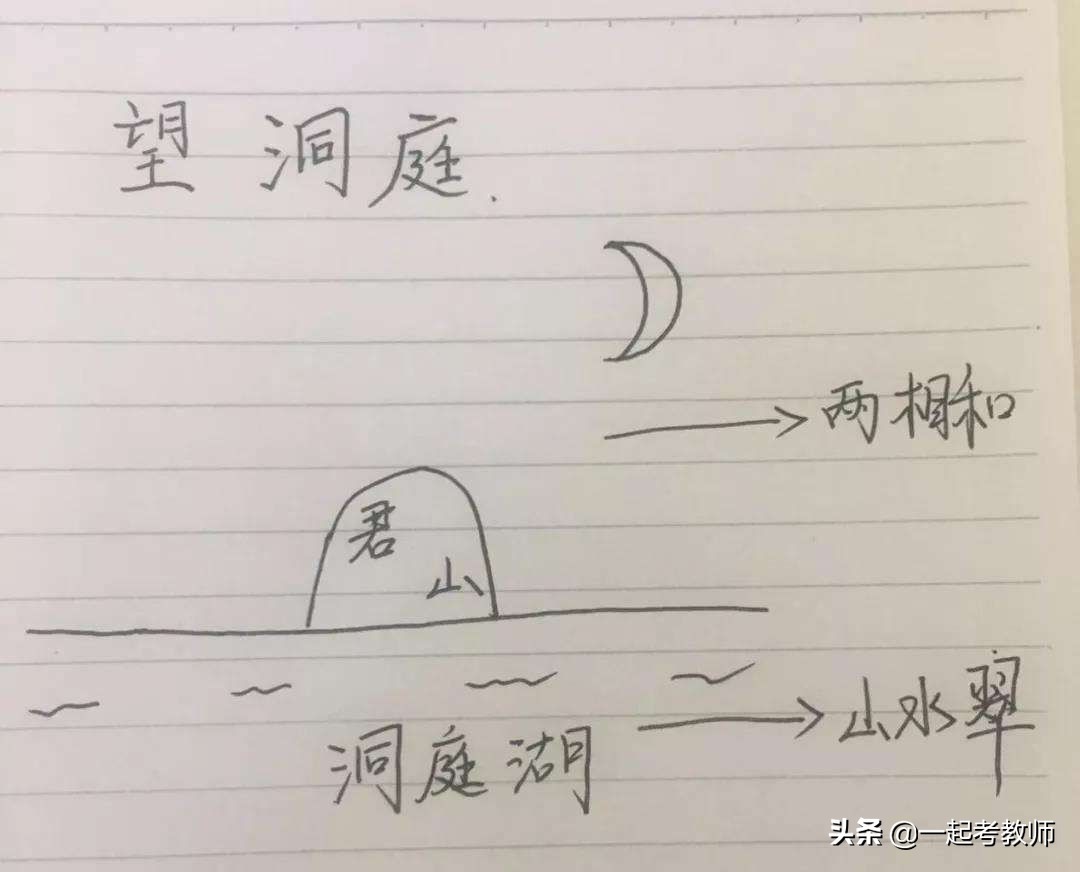 望洞庭.
两相和
君山
山水翠
洞庭湖
头条 @一起考教师